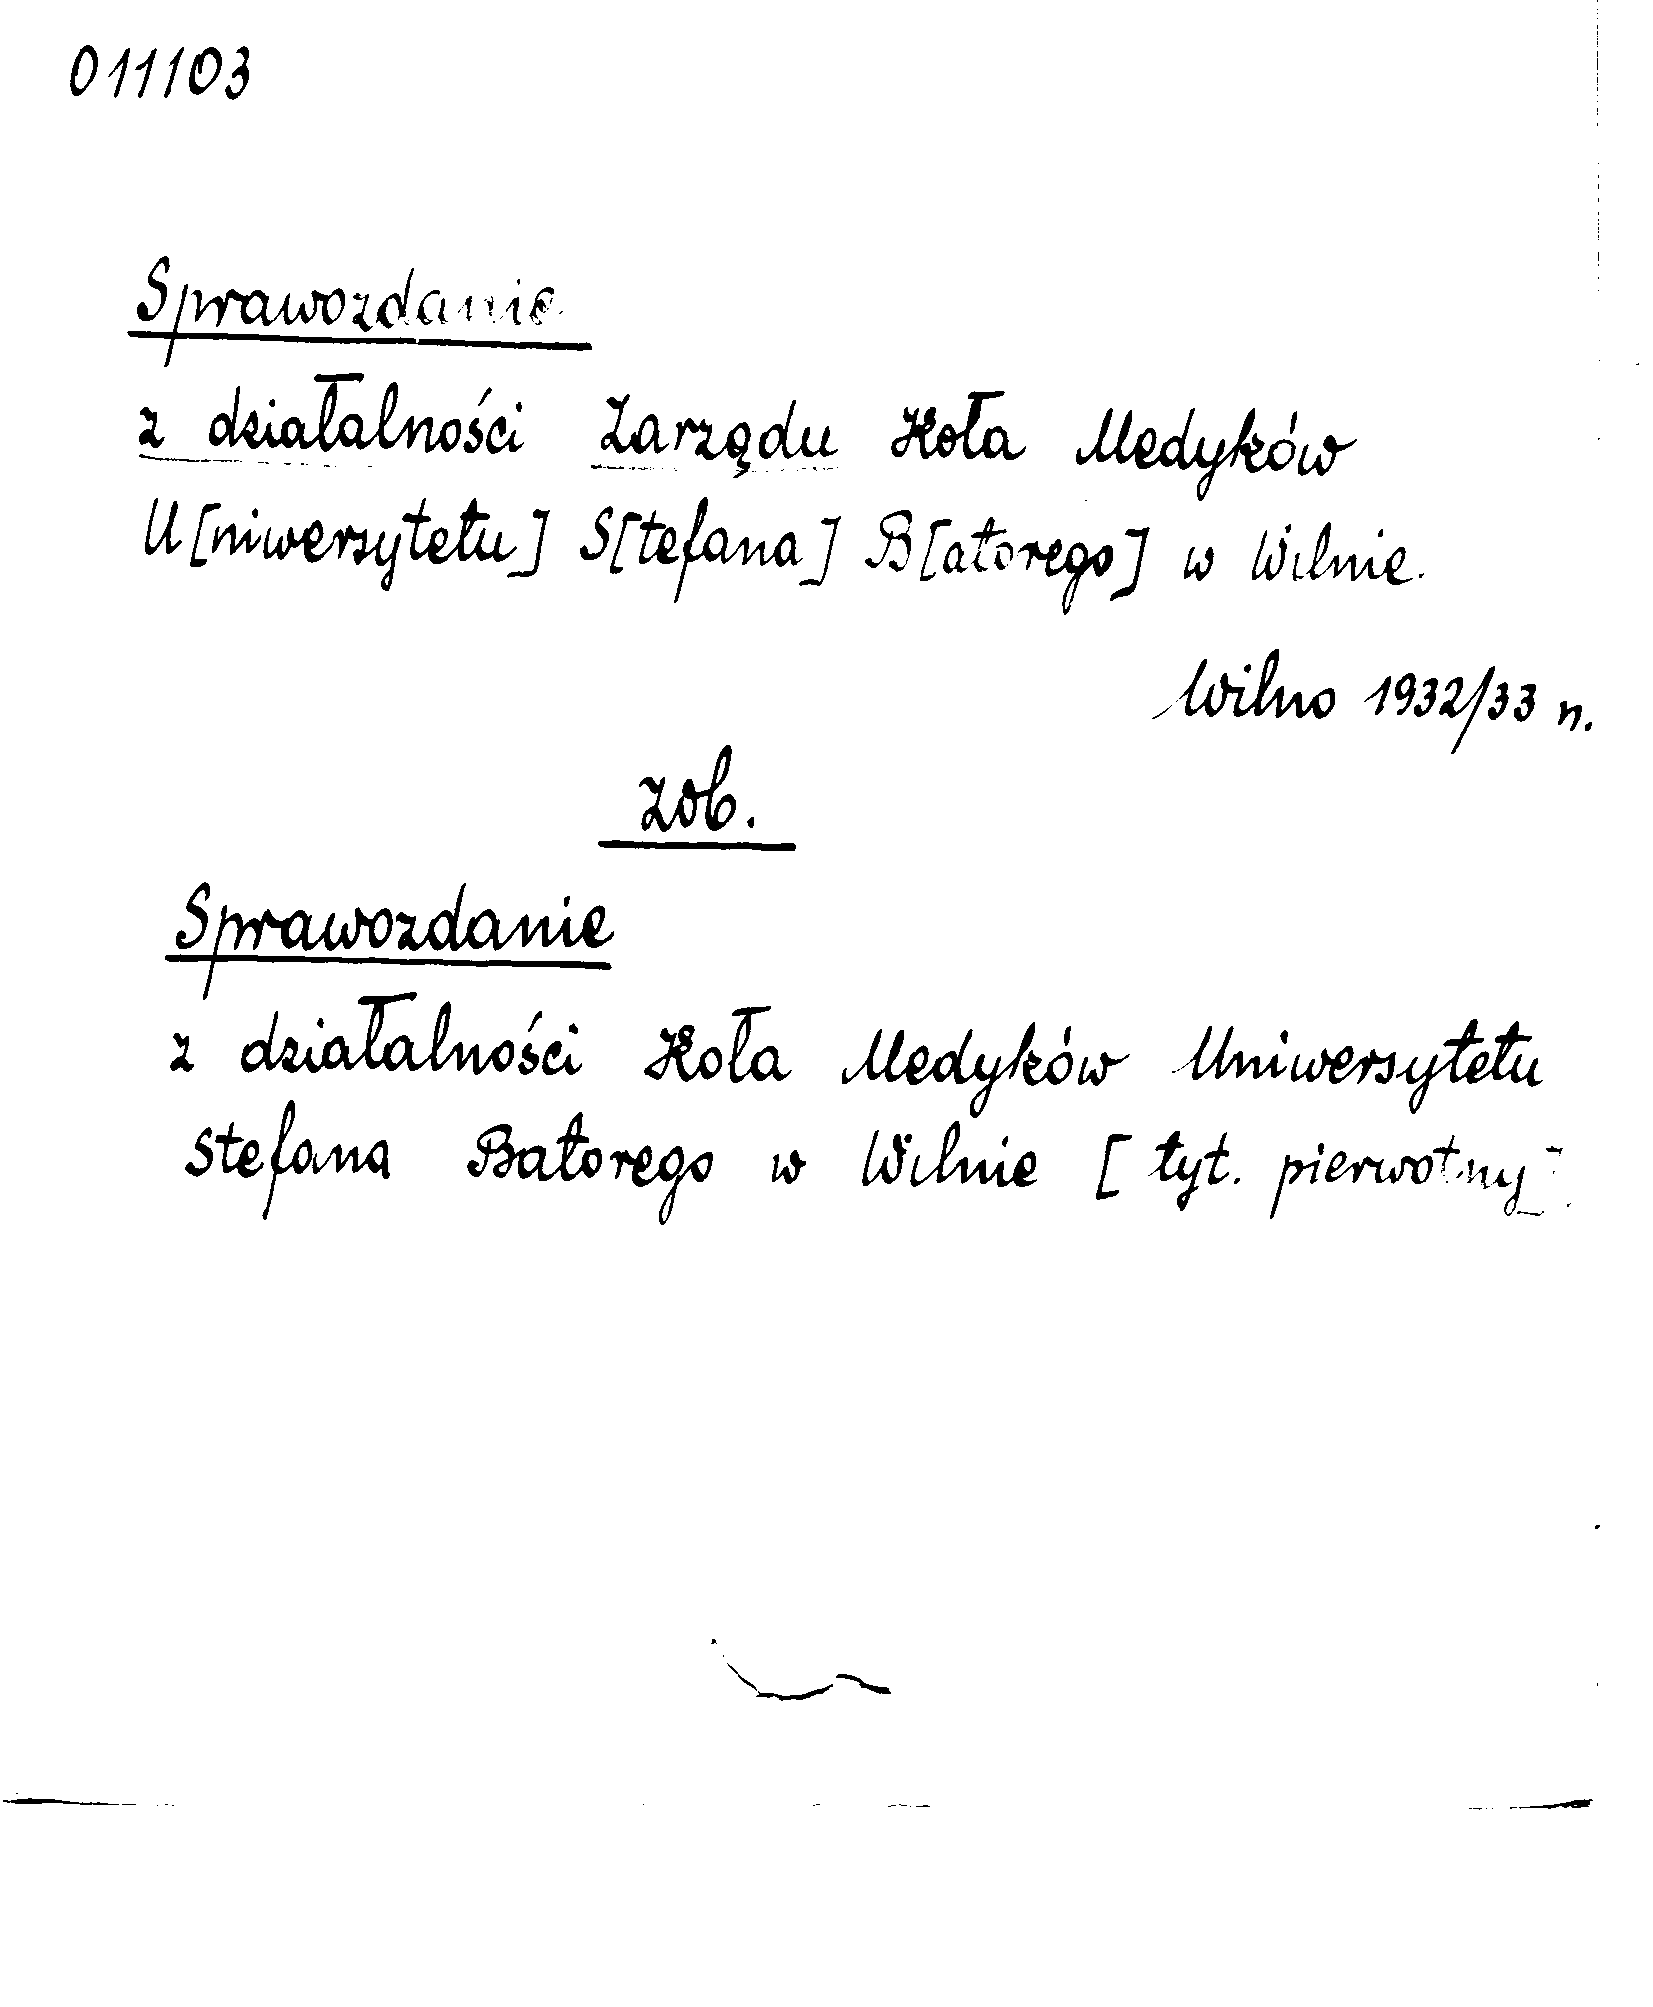 011103
Sprawozdanie
z działalności Zarządu Koła Medyków
U[niwersytetu] S[tefana] B[atorego] w Wilnie.
Wilno 1932/33 n.
zob.
Sprawozdanie
z działalności Koła Medyków Uniwersytetu
Stefana Batorego w Wilnie [tyt. pierwotny]